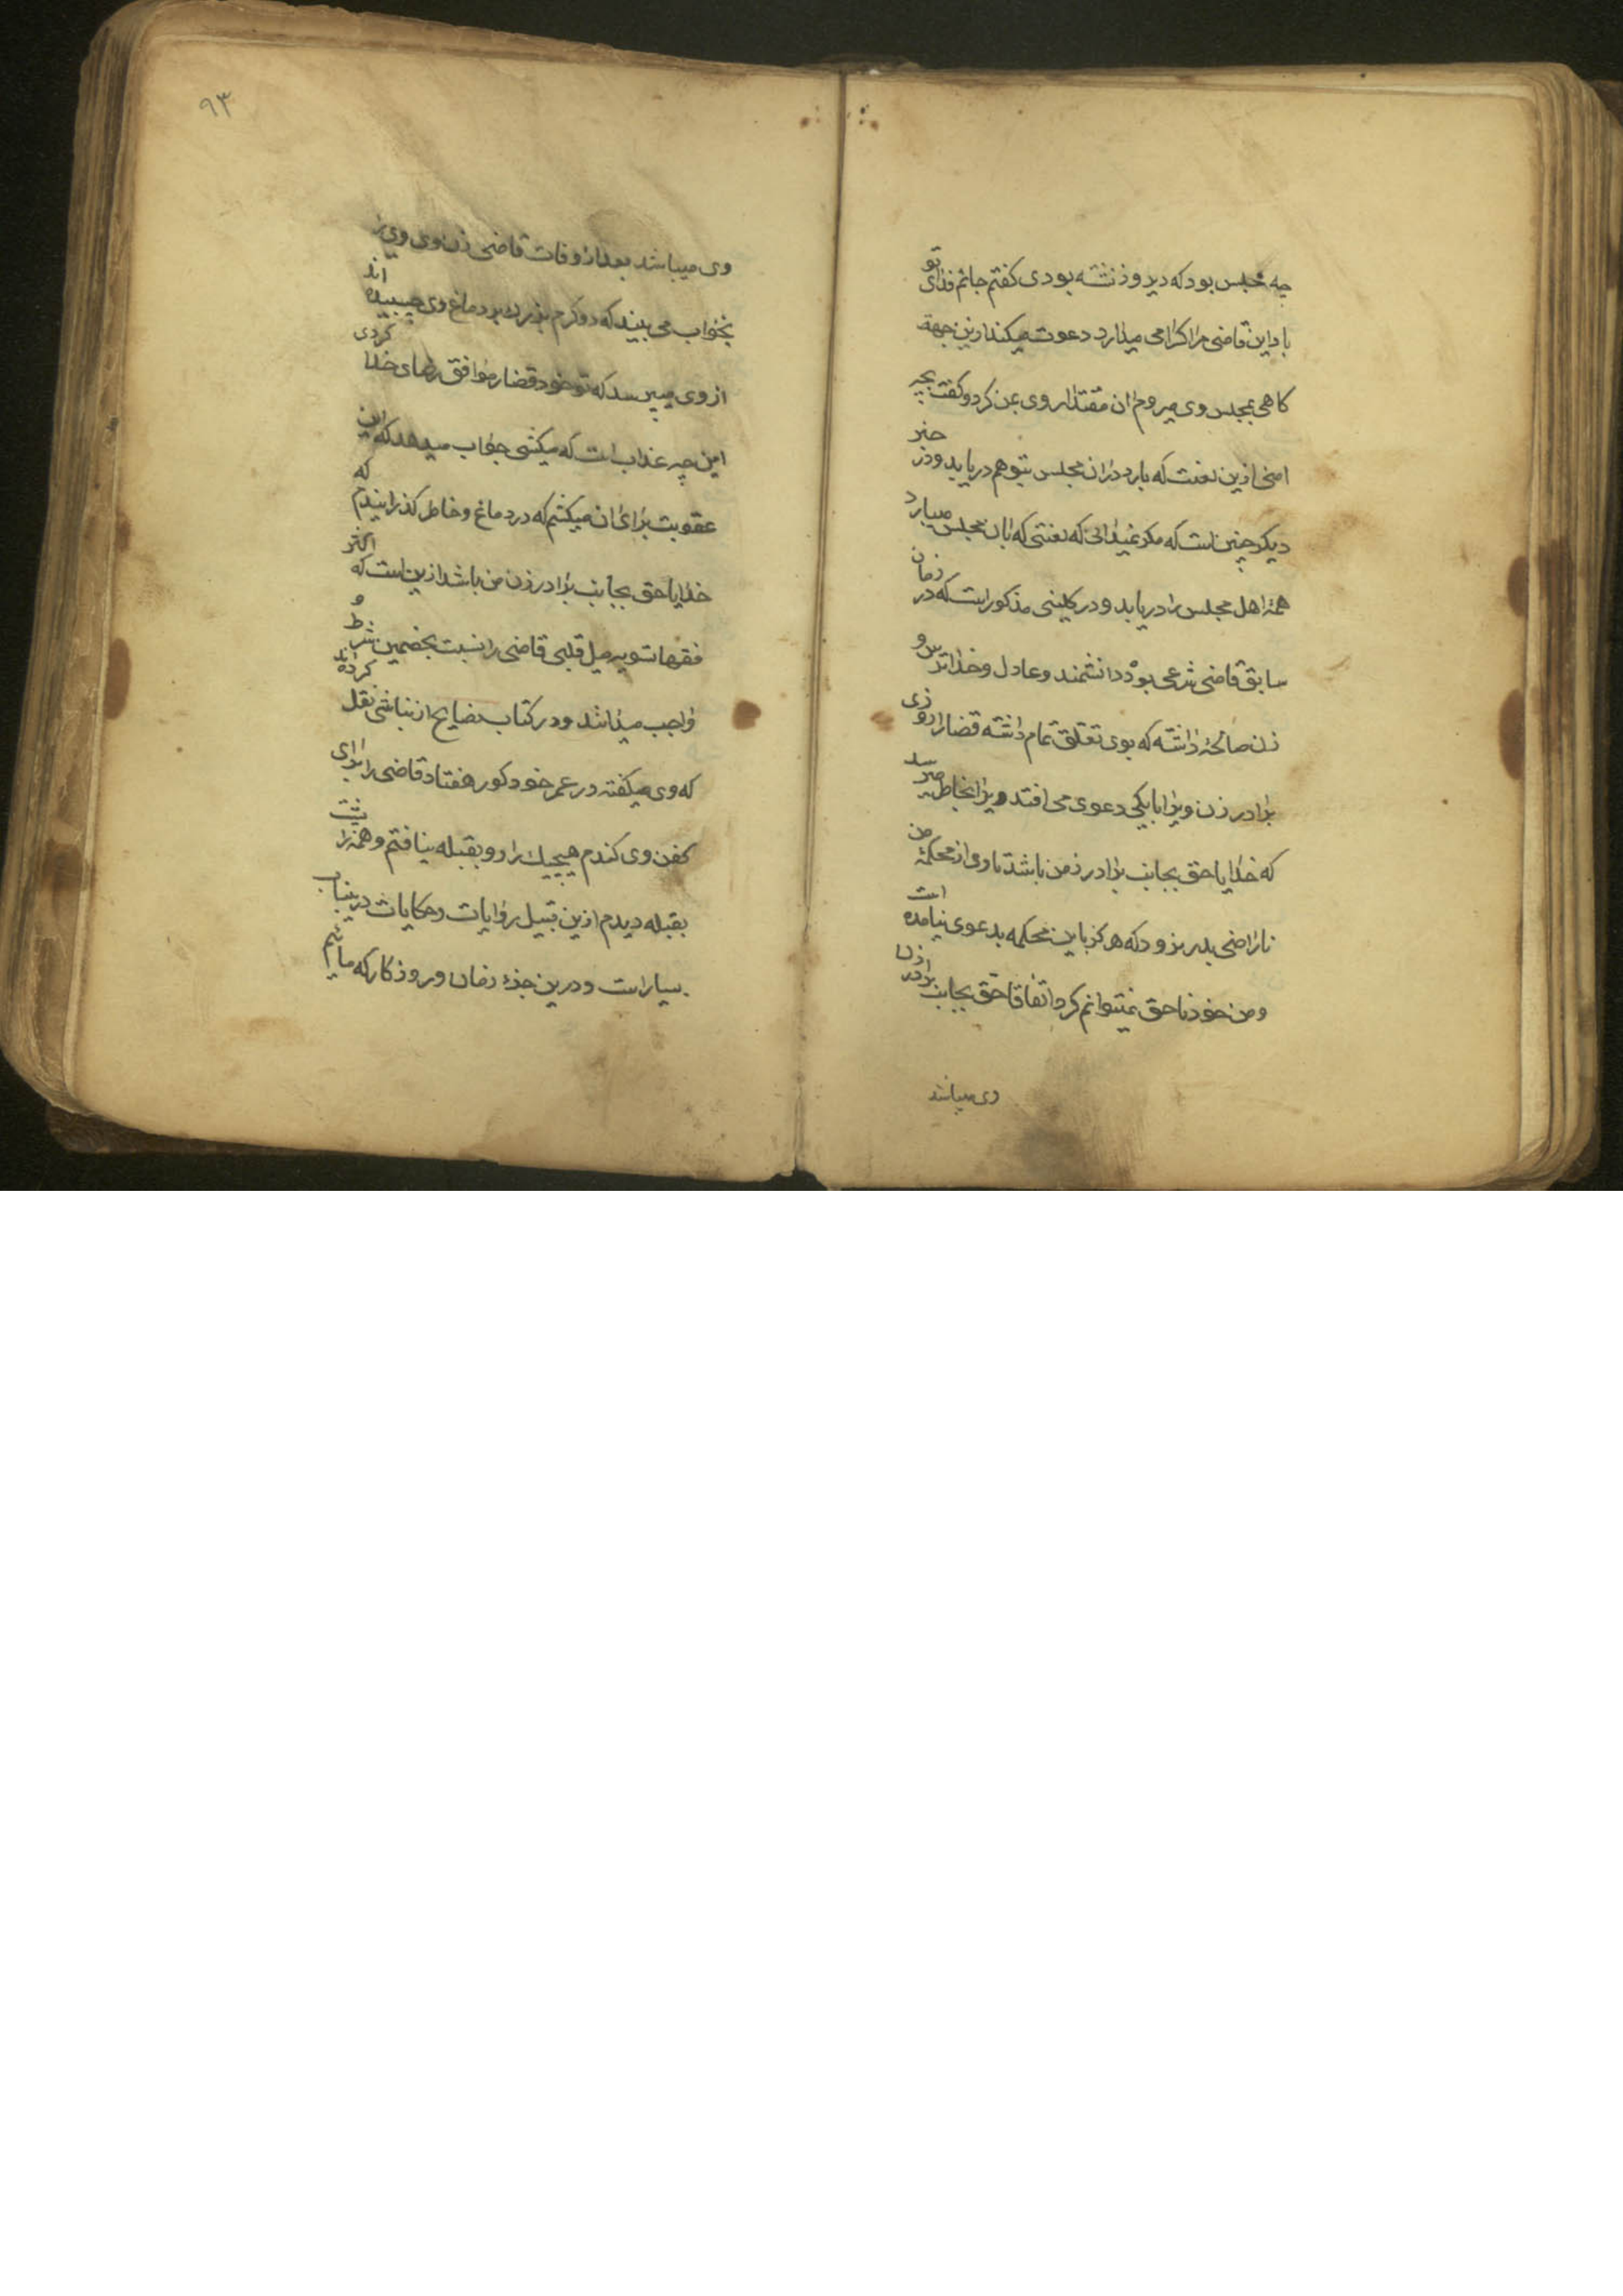 چه مجلس بود که دیروز نشسته بودی گفتم جانم فدای تو
باد این قاضی مرا اکرامی میدارد دعوت میکند ازین جهة
کاهی بمجلس وی میروم ان مقتدا روی بمن کرد و گفت بچه
امنی ازین لعنت که بارد دران مجلس بتو هم دریابد و در خبر
دیگر چنین است که مکر نمیدانی که لعنتی که بان مجلس میبارد
همهٔ اهل مجلس را دریابد و در کلینی مذکور است که در زمان
سابق قاضی شرعی بوده دانشمند و عادل و خدا ترس و
زن صالحهٔ داشته که بوی تعلق تمام داشته قضا را روزی
برادر زن ویرا با یکی دعوی می افتد ویرا بخاطر میرسد
که خدایا حق بجانب برادر زن من باشد تا وی از محکمهٔ من
ناراضی بدر نرود که هرکز باین محکمه بدعوی نیامده است
و من خود ناحق نمیتوانم کرد اتفاقا حق بجانب برادر زن
وی میباشد
۹۳
وی میباشد بعد از وفات قاضی زن وی ویرا
بخواب می بیند که دو کرم بزرك بر دماغ وی چسبیده اند
از وی میپرسد که تو خود قضا را موافق رضای خدا کردی
این چه عذاب است که میکشی جواب میدهد که این
عقوبت برای ان میکشم که در دماغ و خاطر گذرانیدم که
خدایا حق بجانب برادر زن من باشد ازین است که اکثر
فقها تسویه میل قلبی قاضی را نسبت بخصمین شرط و
واجب میدانند و در کتاب نصایح از نباشی نقل کرده اند
که وی میکفته در عمر خود کور هفتاد قاضی را برای
کفن وی کندم هیچیك را رو بقبله نیافتم و همه را پشت
بقبله دیدم ازین قبیل روایات و حکایات درینباب
بسیار است و درین جزء زمان و روزکار که مائیم